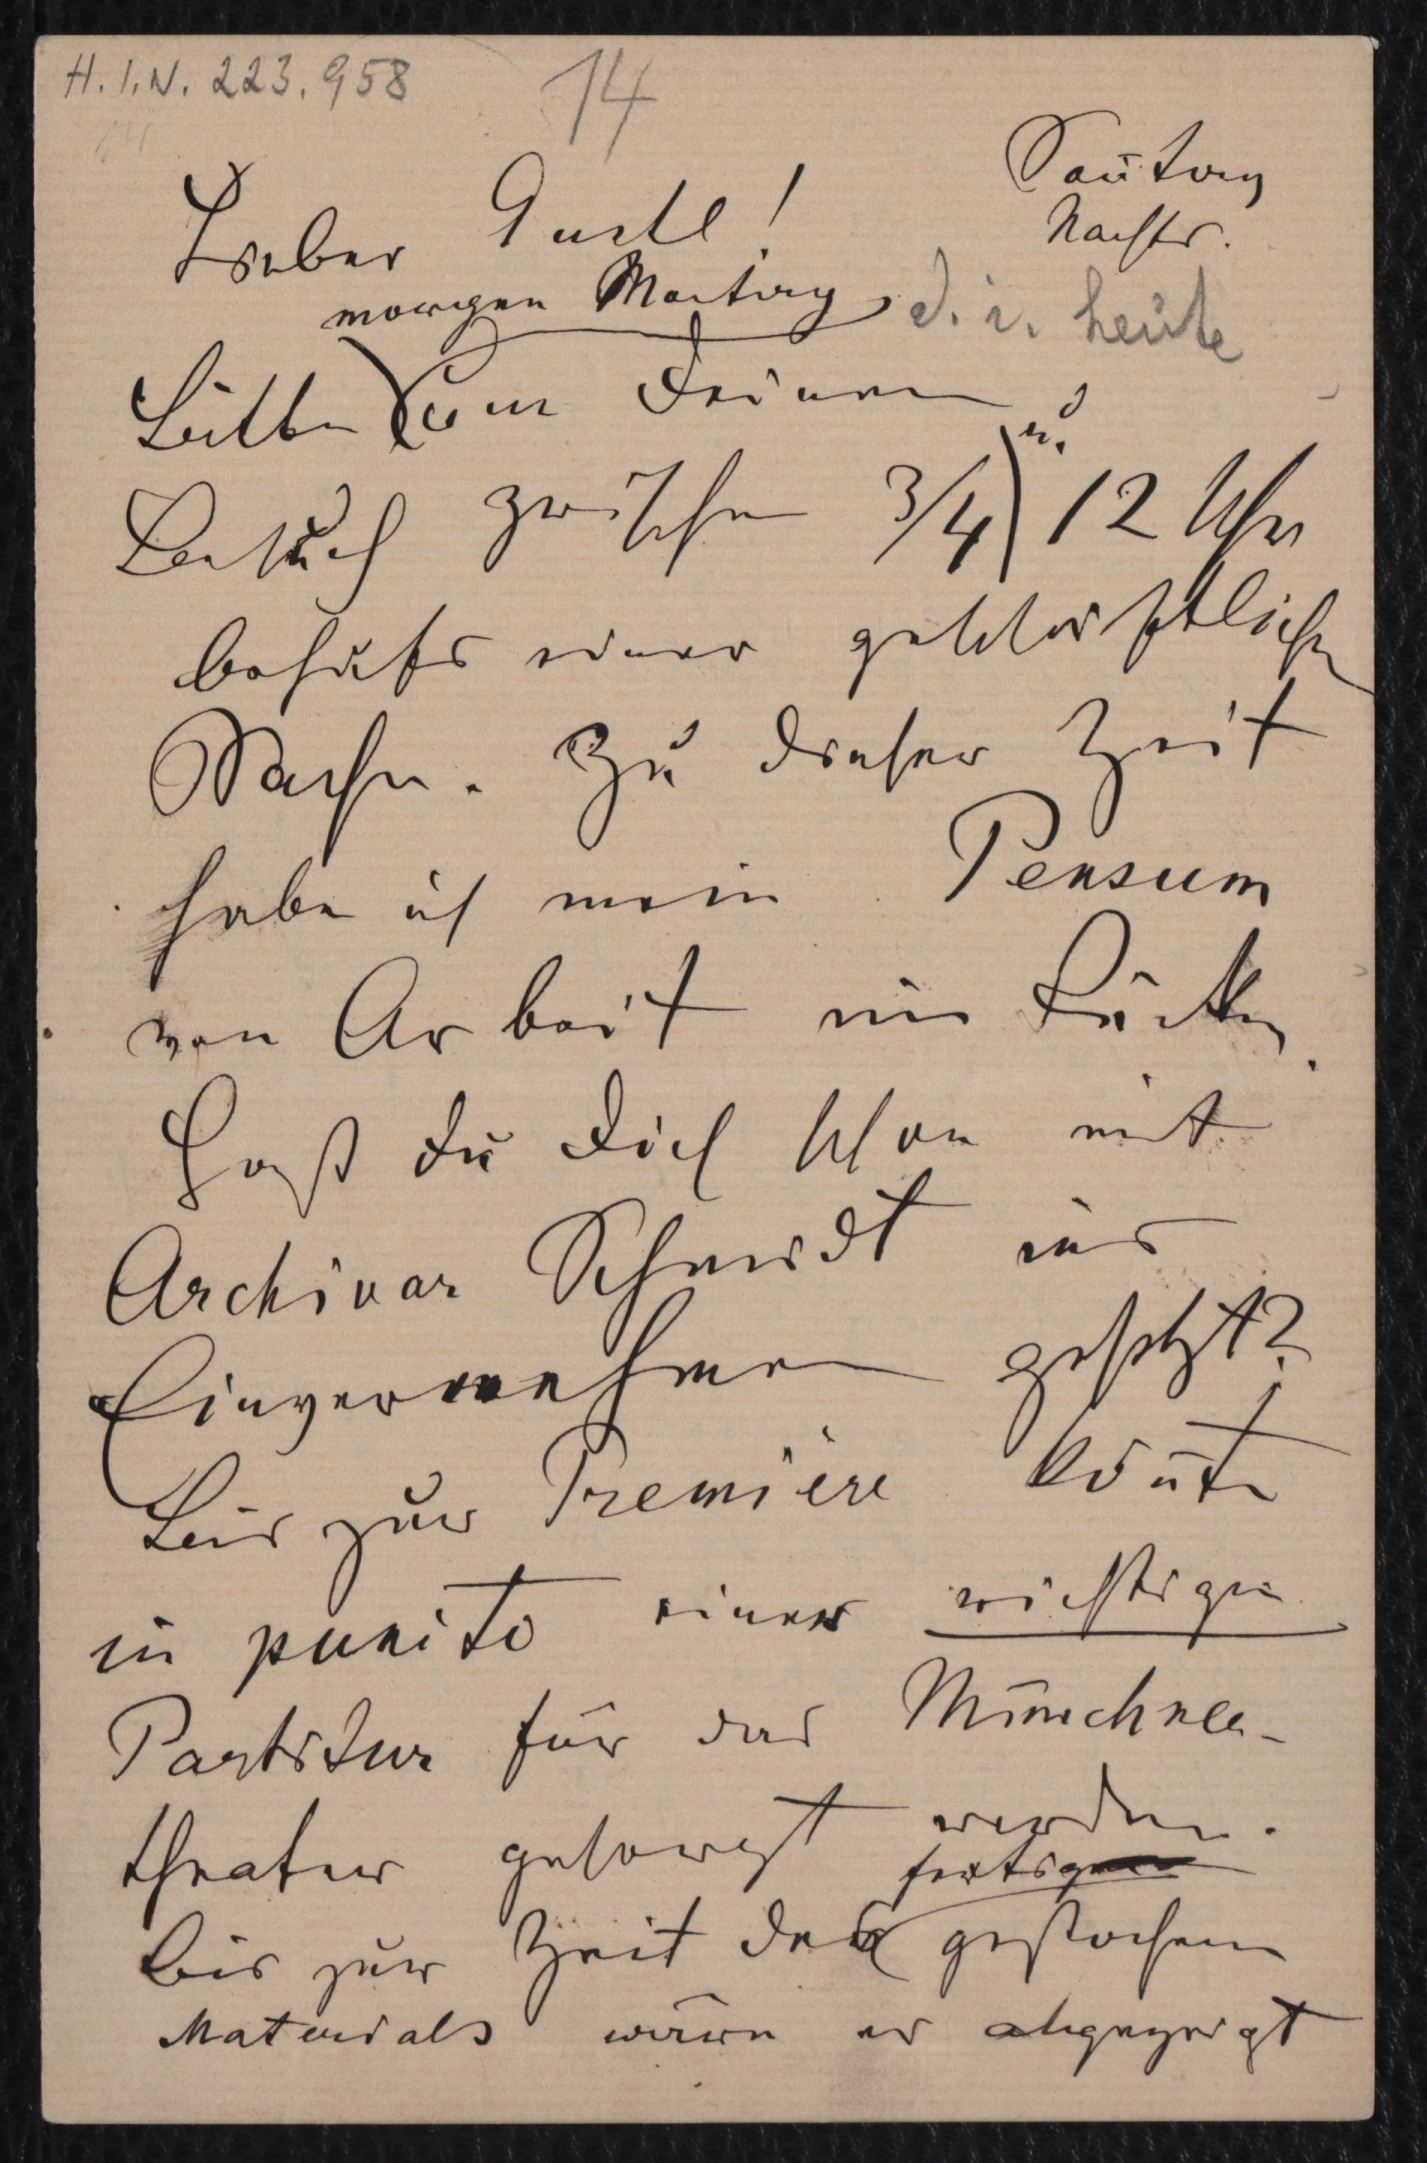 H.I.N. 223.958
14
Sonntag
Nachts.
Lieber Gustl!
morgen Montag, d. i. heute
Bitte um Deinen
Besuch zwischen 3/4 u. 12 Uhr
behufs einer geschäftlichen
Sache. Zu dieser Zeit
habe ich mein Pensum
von Arbeit im Rücken.
Hast du Dich schon mit
Archivar Schmidt ins
Einvernehmen gesetzt?
Bis zur Première könnte
in punkto einer richtigen
Partitur für das Münchner-
theater gesorgt werden.
fertig
Bis zur Zeit des gestochenen
Materials wäre er abgezeigt